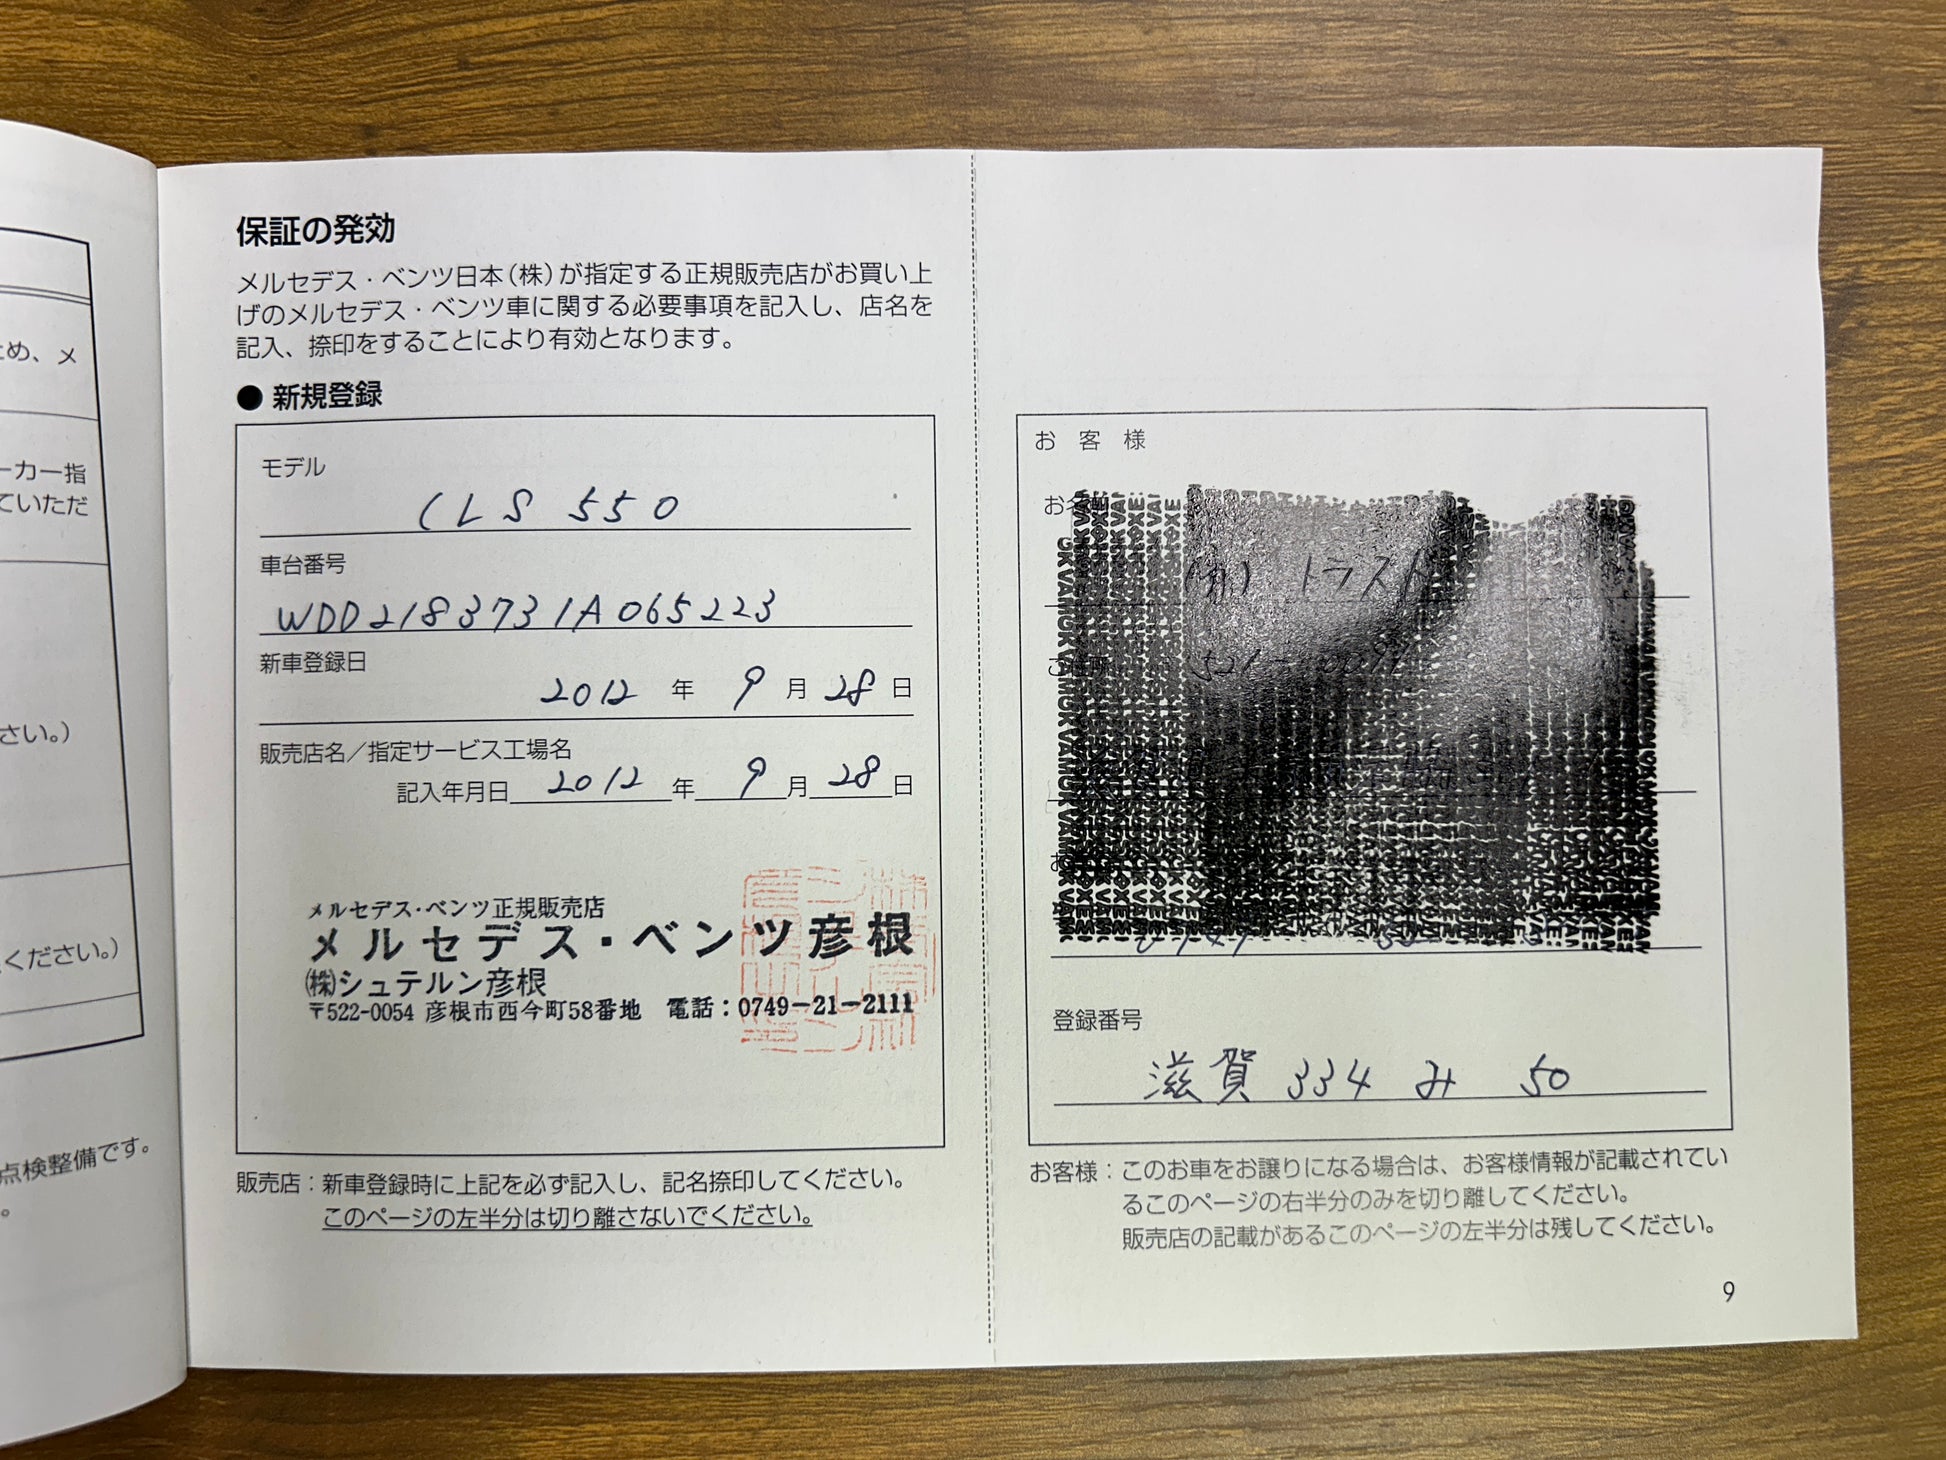 め、メ
ーカー指
ていただ
さい。)
ください。)
点検整備です。
。
保証の発効
メルセデス・ベンツ日本(株)が指定する正規販売店がお買い上
げのメルセデス・ベンツ車に関する必要事項を記入し、店名を
記入、捺印をすることにより有効となります。
● 新規登録
モデル
CLS 550
車台番号
WDD2183731A065223
新車登録日
2012 年 9 月 28 日
販売店名/指定サービス工場名
記入年月日 2012 年 9 月 28 日
メルセデス・ベンツ正規販売店
メルセデス・ベンツ彦根
㈱シュテルン彦根
〒522-0054 彦根市西今町58番地 電話:0749-21-2111
販売店:新車登録時に上記を必ず記入し、記名捺印してください。
このページの左半分は切り離さないでください。
お客様
登録番号
滋賀 334 み 50
お客様:このお車をお譲りになる場合は、お客様情報が記載されてい
るこのページの右半分のみを切り離してください。
販売店の記載があるこのページの左半分は残してください。
9